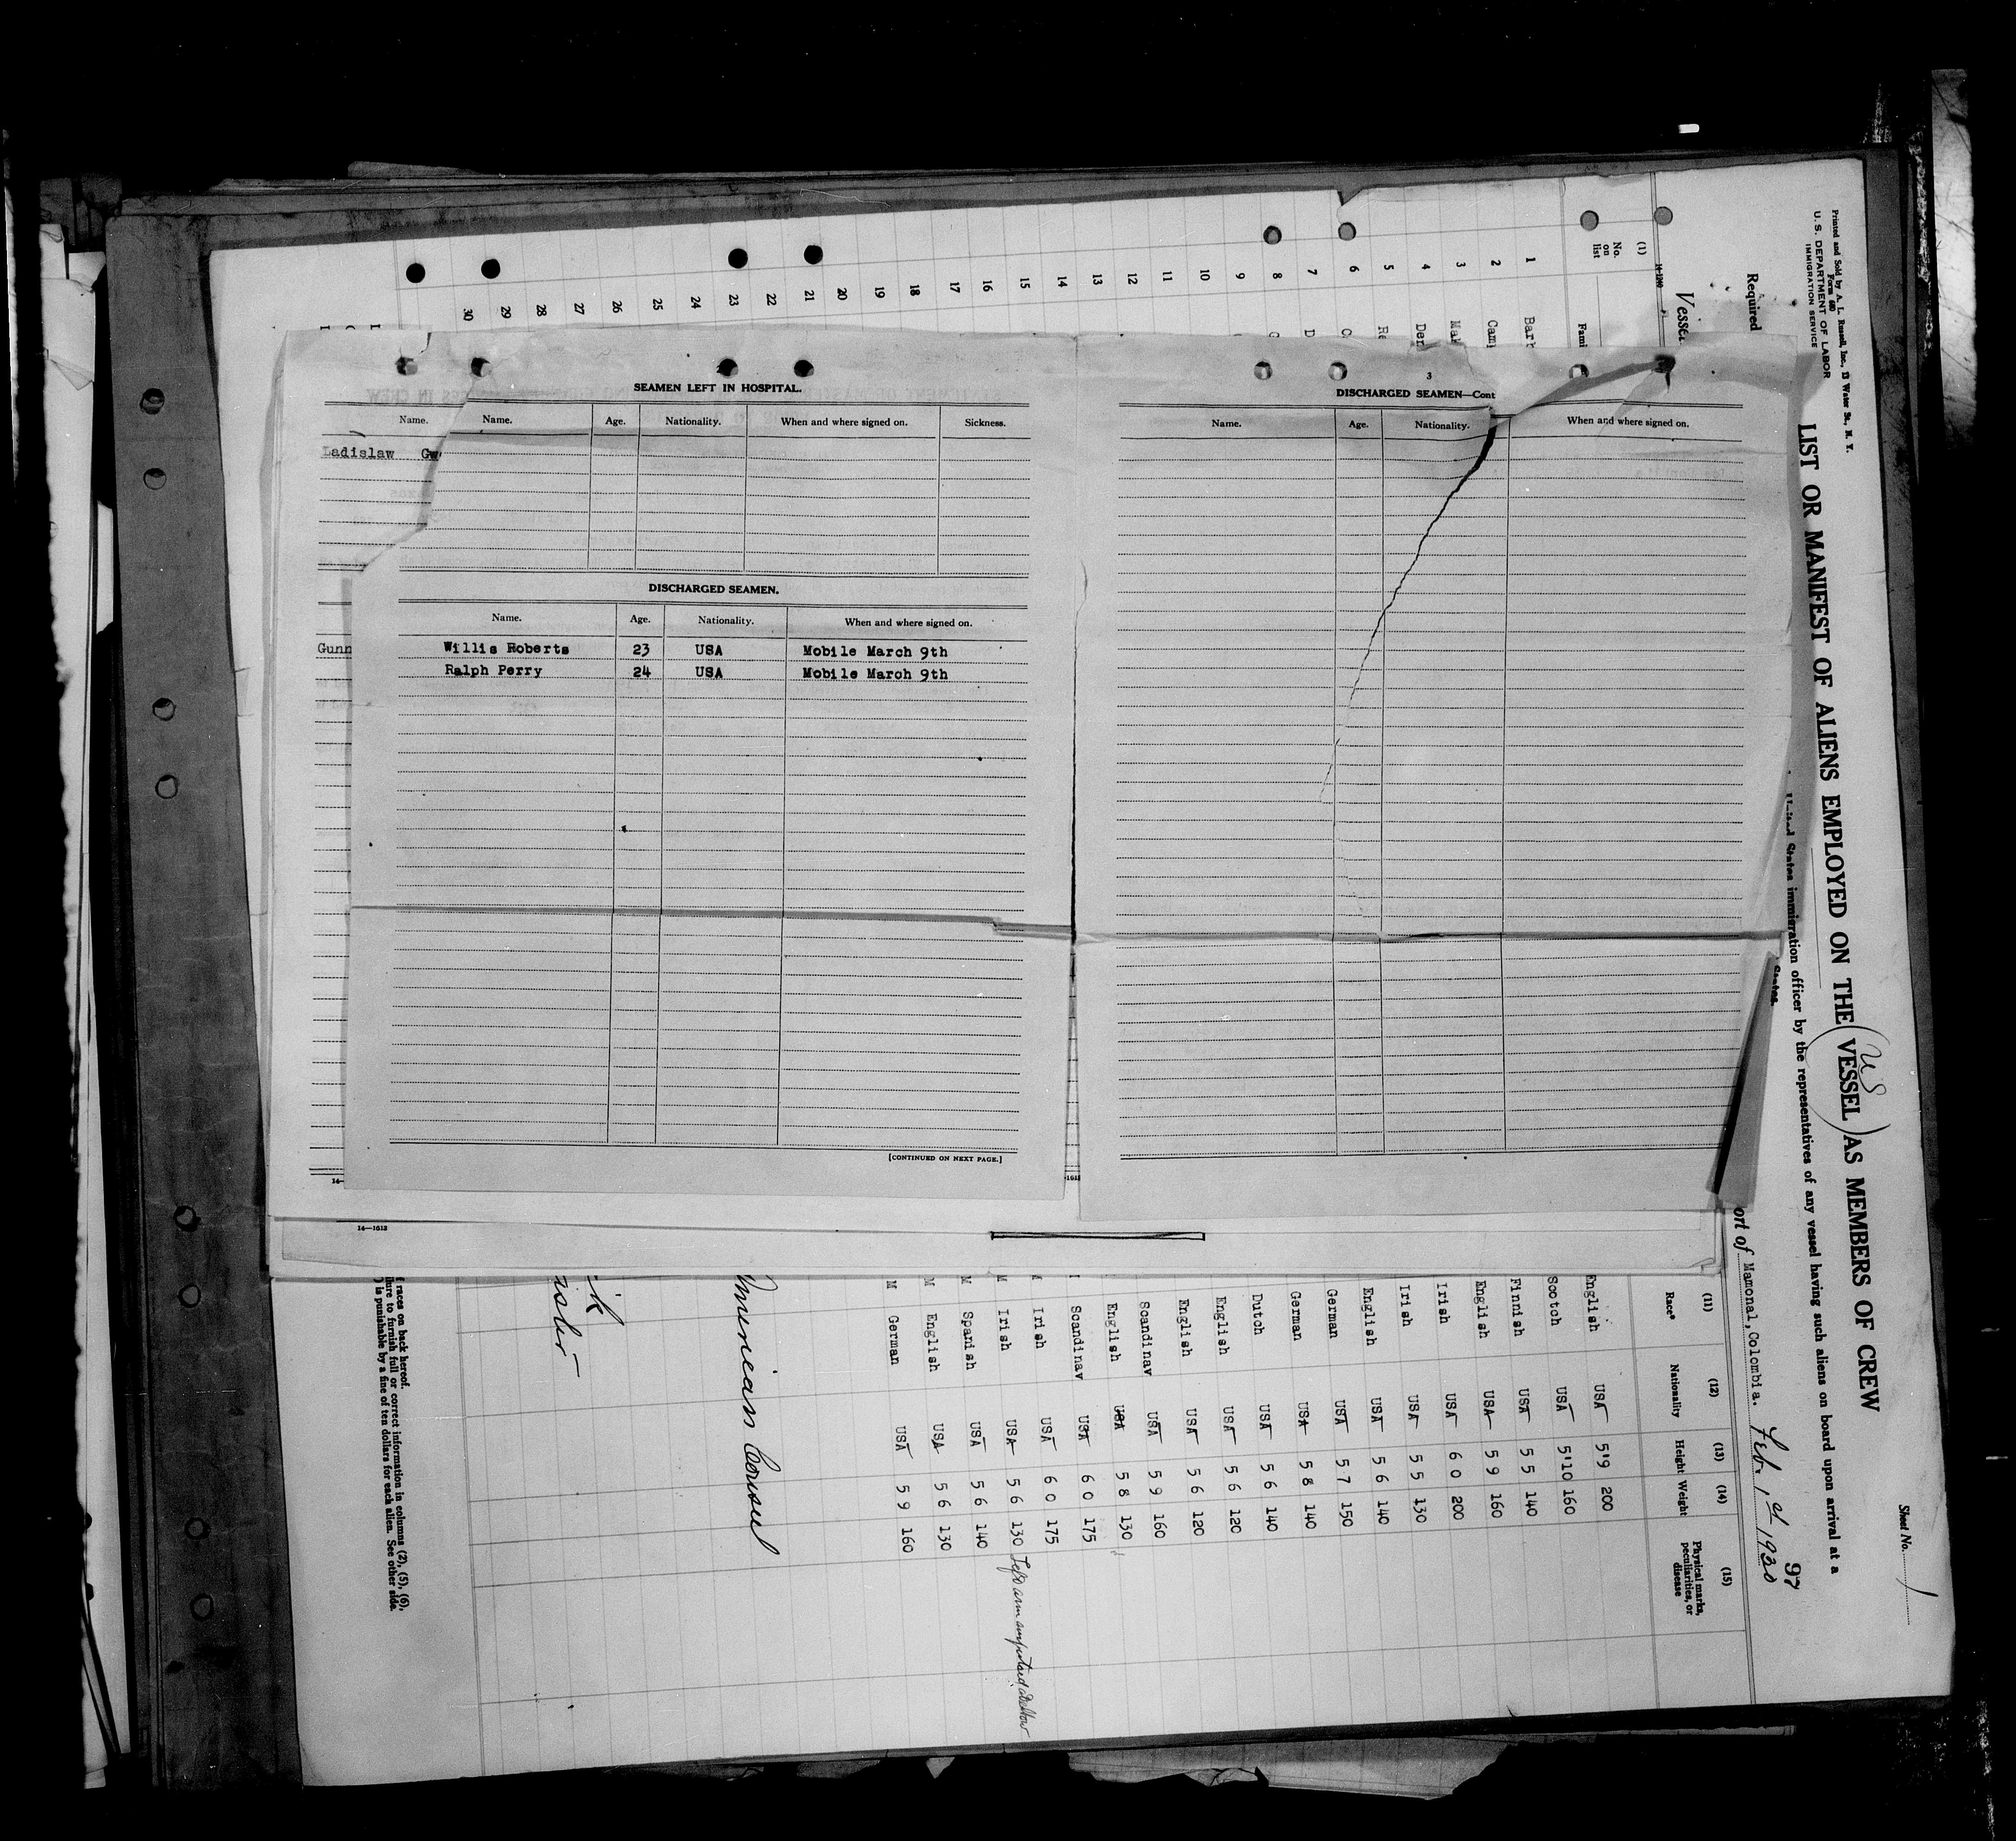 SEAMEN LEFT IN HOSPITAL.
Name. Name. Age. Nationality. When and where signed on. Sickness.
Ladislaw Gw
DISCHARGED SEAMEN.
Name. Age. Nationality. When and where signed on.
Gunn
Willis Roberts 23 USA Mobile March 9th
Ralph Perry 24 USA Mobile March 9th
[CONTINUED ON NEXT PAGE.]
14—1613
3
DISCHARGED SEAMEN—Cont
Name. Age. Nationality. When and where signed on.
Printed and Sold by A. L. Russell, Inc., 13 Water St., N. Y.
Form 680
U. S. DEPARTMENT OF LABOR
IMMIGRATION SERVICE
Sheet No. 1
LIST OR MANIFEST OF ALIENS EMPLOYED ON THE VESSEL AS MEMBERS OF CREW
US
Required
United States immigration officer by the representatives of any vessel having such aliens on board upon arrival at a
States.
97
Vesse
ort of Mamonal, Colombia. Feb. 1st 1930
(1) (11) (12) (13) (14) (15)
No. on list Fami Race* Nationality Height Weight Physical marks, peculiarities, or disease
1 Barb English USA 5'9 200
2 Camp Scotch USA 5'10 160
3 Mak Finnish USA 5 5 140
4 Den English USA 5 9 160
5 Re Irish USA 6 0 200
6 C Irish USA 5 5 130
7 D English USA 5 6 140
8 German USA 5 7 150
9 German USA 5 8 140
10 Dutch USA 5 6 140
11 English USA 5 6 120
12 English USA 5 6 120
13 Scandinav USA 5 9 160
14 English USA 5 8 130
15 Scandinav USA 6 0 175
16 Irish USA 6 0 175
17 M Irish USA 5 6 130 Left arm amputated at elbow
18 M Spanish USA 5 6 140
19 M English USA 5 6 130
20 M German USA 5 9 160
21
22
23
24
25
26
27
28
29
30
American Consul
f races on back hereof.
lure to furnish full or correct information in columns (2), (5), (6),
) is punishable by a fine of ten dollars for each alien. See other side.